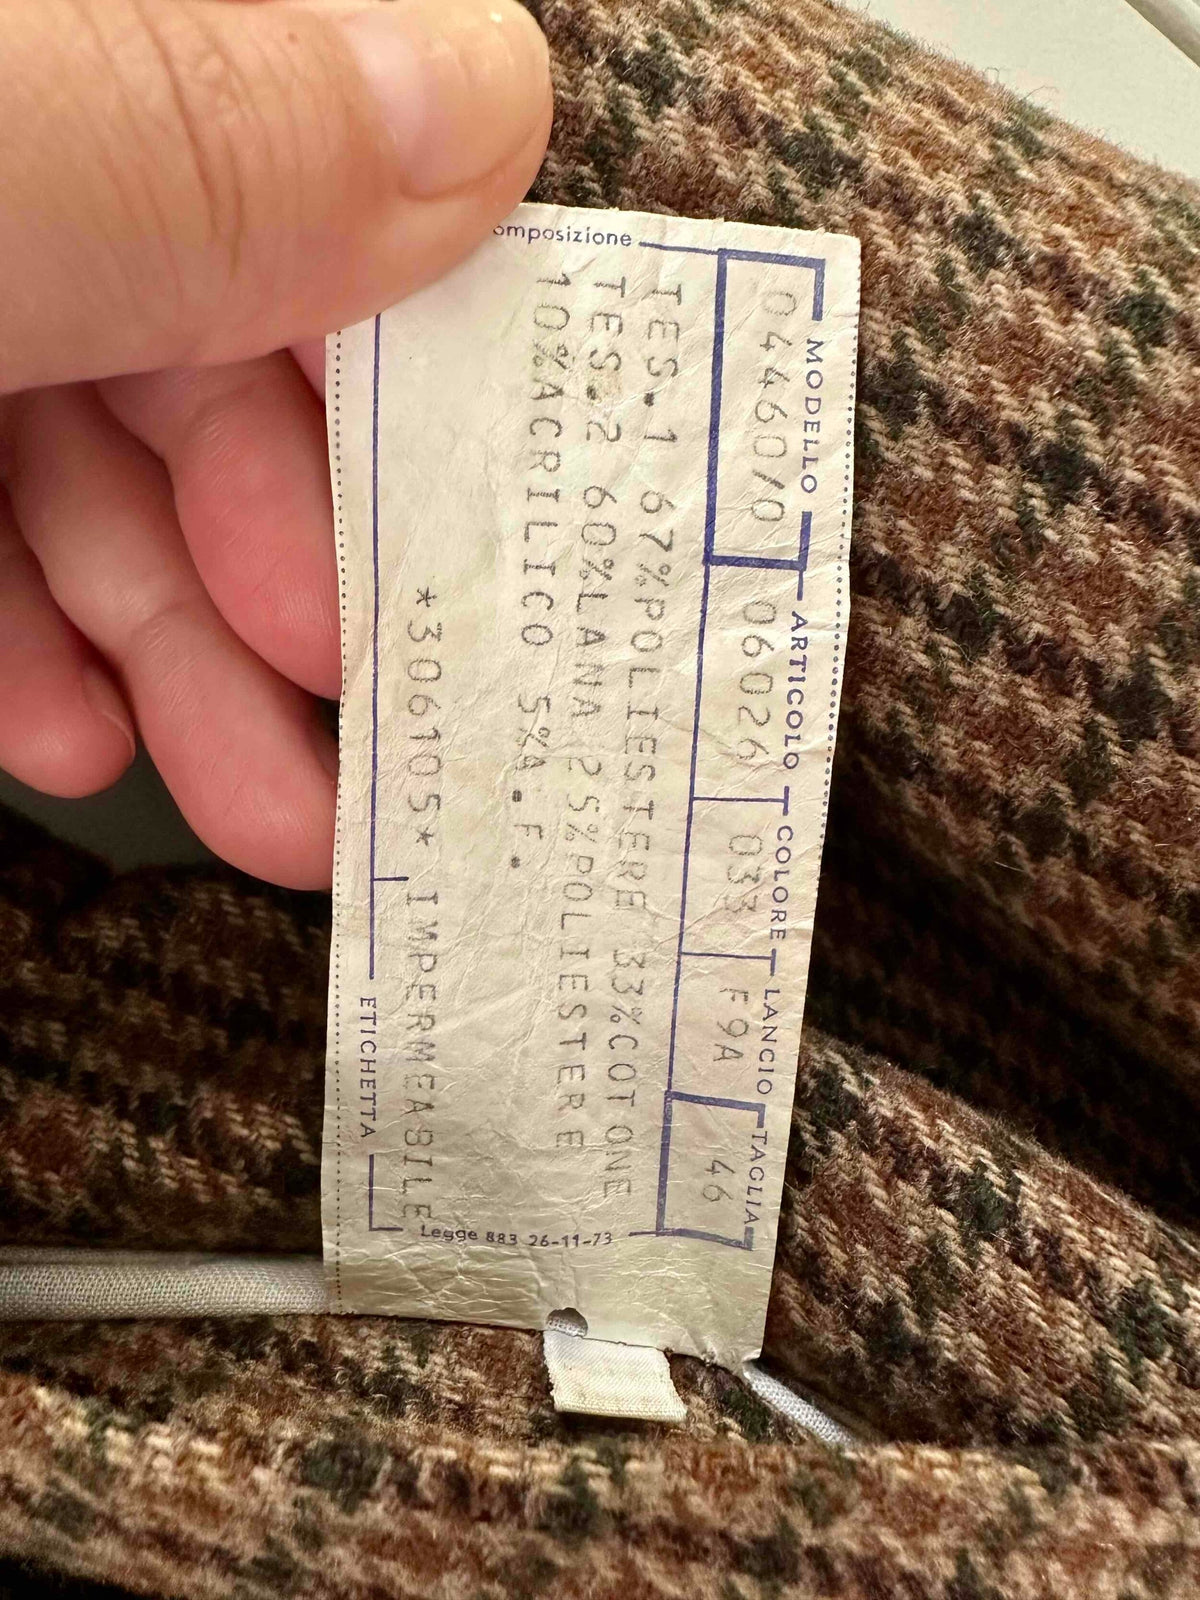 MODELLO ARTICOLO COLORE LANCIO TAGLIA
04460/0 06026 033 F9A 46
omposizione
TES.1 67%POLIESTERE 33%COTONE
TES.2 60%LANA 25%POLIESTERE
10%ACRILICO 5%A.F.
*306105* IMPERMEABILE
ETICHETTA
Legge 883 26-11-73